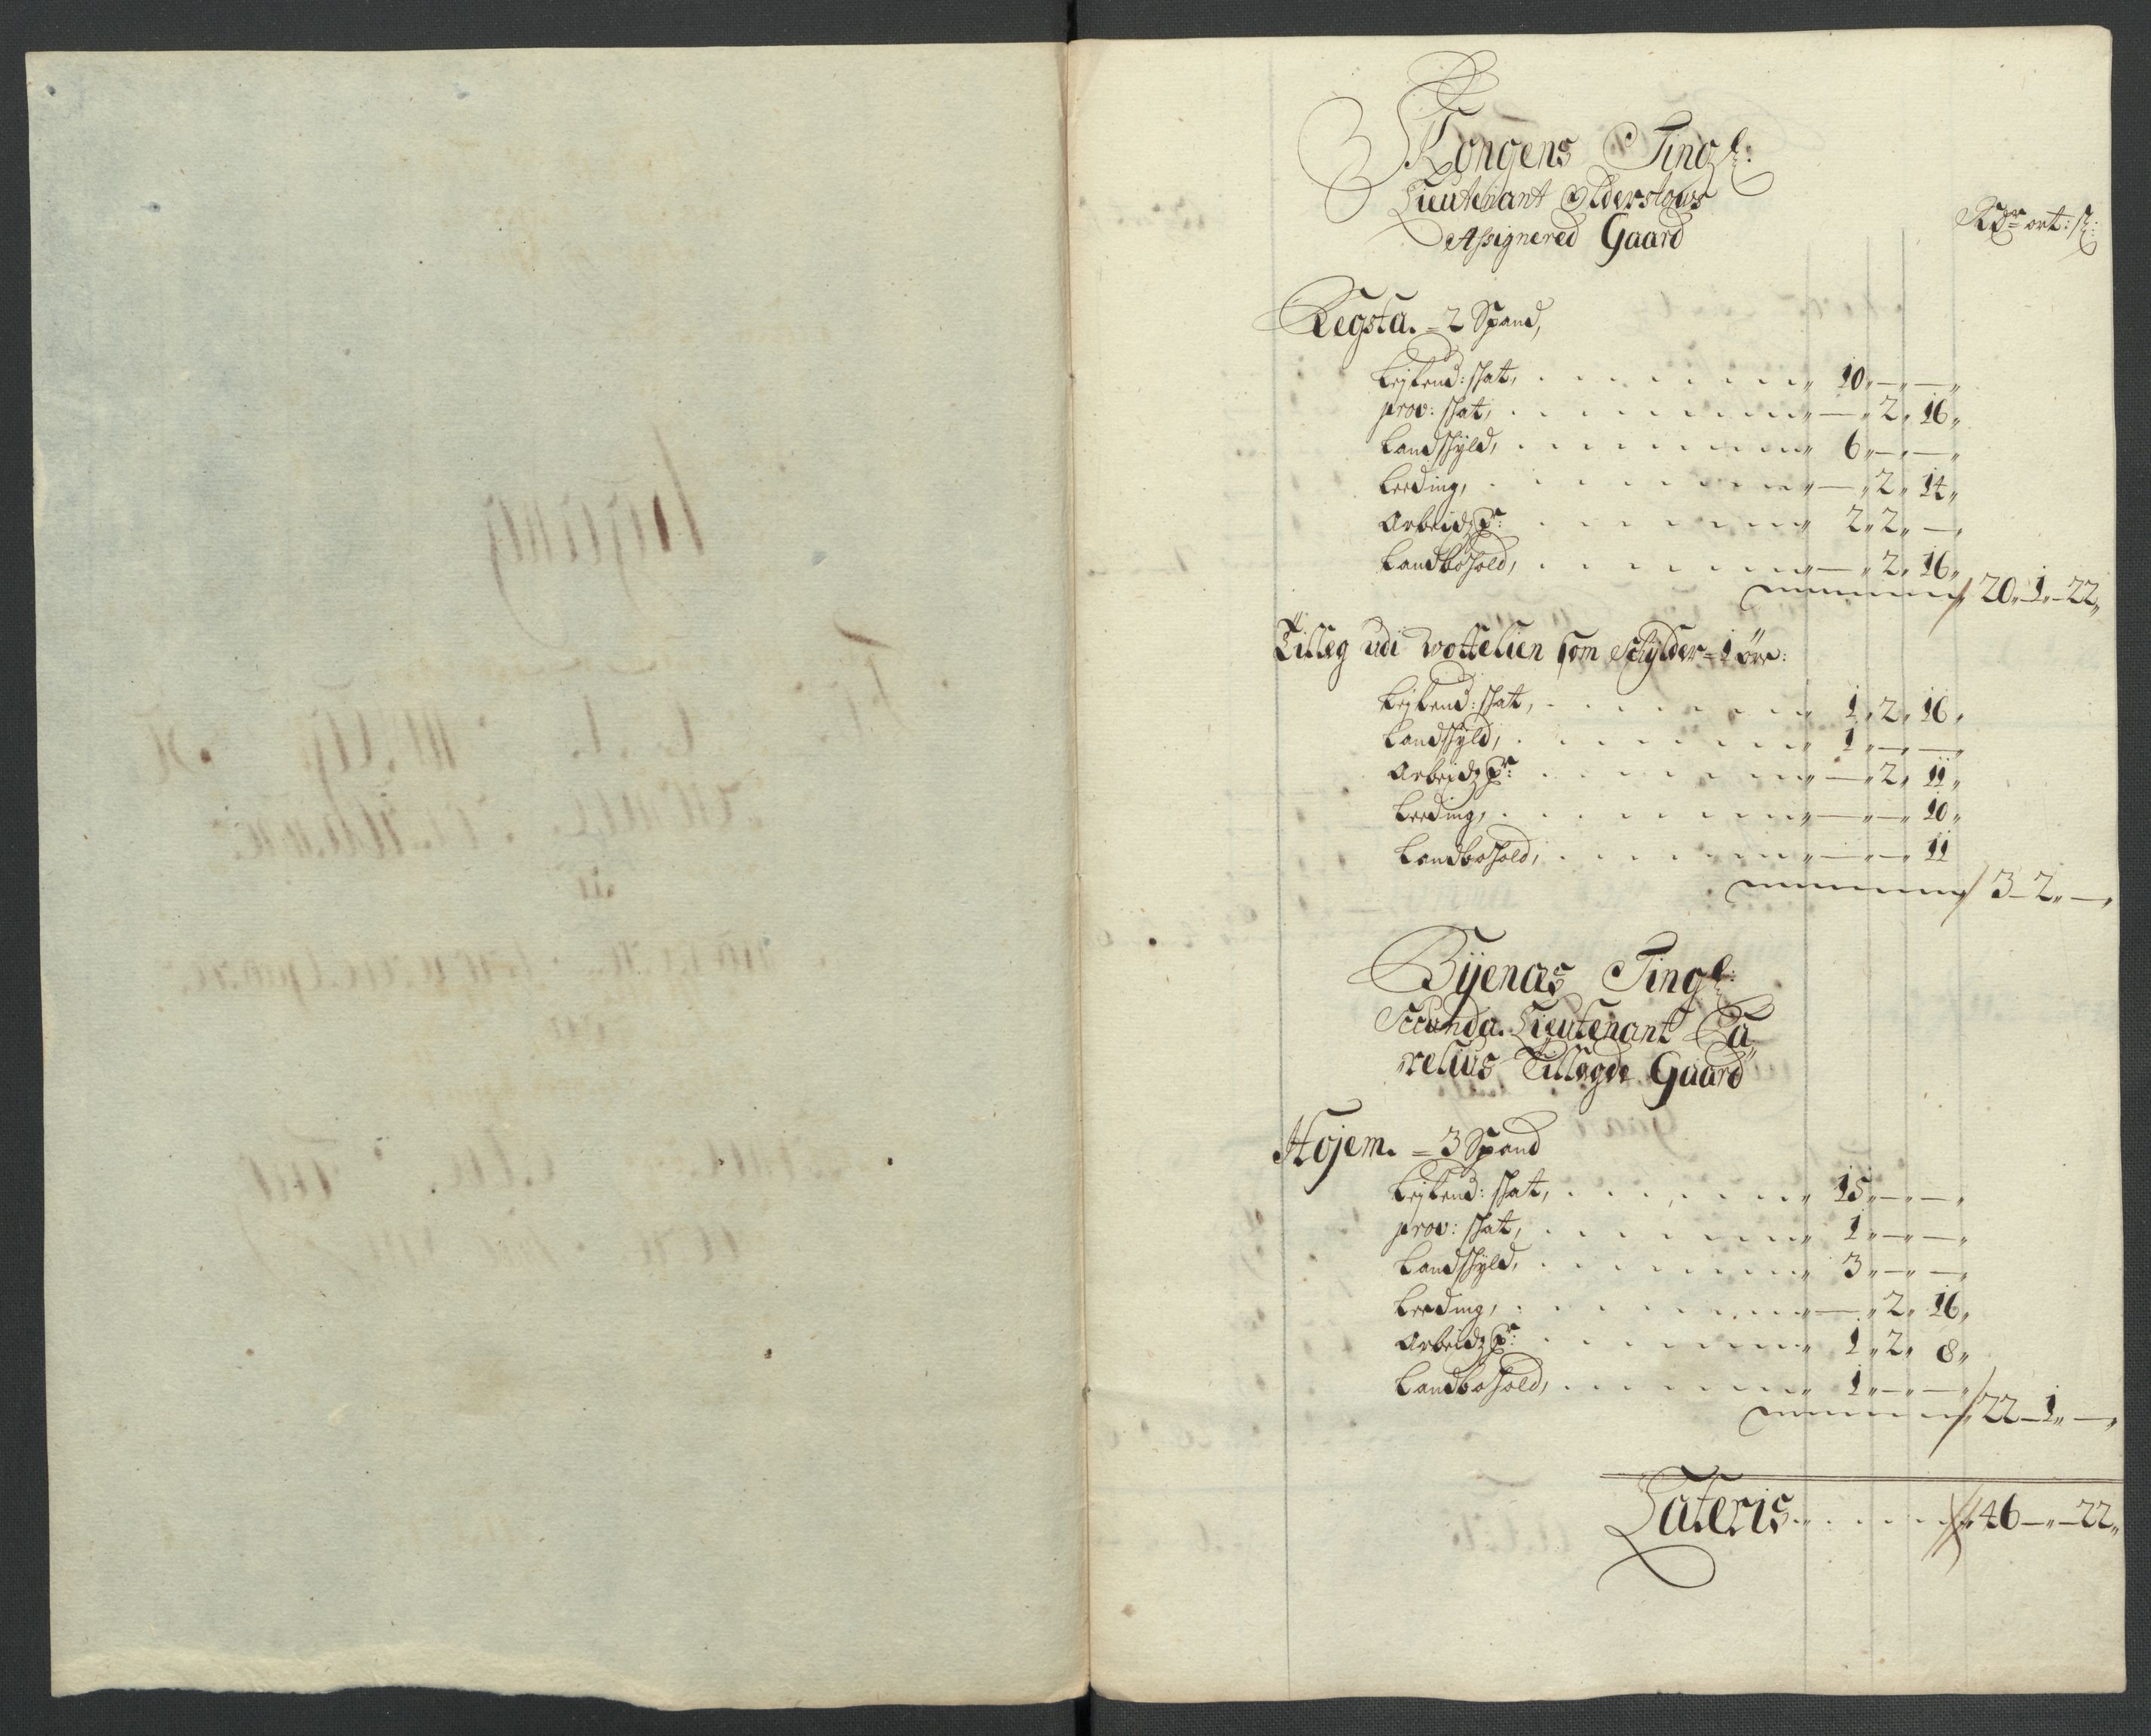 Kongens Tingl:
Lieutenant Olderslows
Assignered Gaard
Rdr ort: s:
Kegsta. = 2 Spand,
Lejlend: skat, 10 „ — „ — „
prov: skat, — „ 2 „ 16 „
Landskyld, 6 „ — „ — „
Leeding, — „ 2 „ 14 „
Arbeidz P: 2 „ 2 „ — „
Landbohold, — „ 2 „ 16 „
20 „ 1 „ 22 „
Tilleg udi wottelien som Schylder = 1 øre:
Lejlend: skat, 1 „ 2 „ 16 „
Landskyld, 1 „ — „ — „
Arbeidz P: — „ 2 „ 11 „
Leeding, — „ — „ 10 „
Landbohold, — „ — „ 11
3 – 2 „ — „
Byenæs Tingl:
Secunda. Lieutenant Ca
relius Tillegde Gaard
Højem. = 3 Spand
Lejlend: skat, 15 „ — „ — „
prov: skat, 1 „ — „ — „
Landskyld, 3 „ — „ — „
Leeding, — „ 2 „ 16 „
Arbeidz P: 1 „ 2 „ 8 „
Landbohold, 1 „ — „ — „
22 – 1 „ — „
Lateris 46 — „ — 22 „